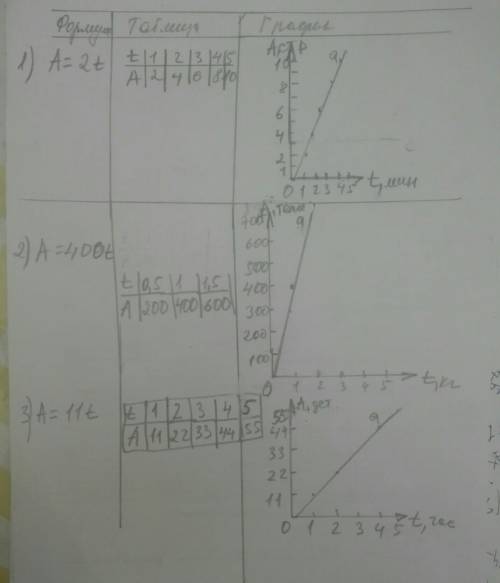 Формула Таблица График
1) A=2t
t 1 2 3 4 5
A 2 4 6 8 10
10
8
6
4
2
1
0 1 2 3 4 5 t, мин
a
2) A=400t
t 0,5 1 1,5
A 200 400 600
700
600
500
400
300
200
100
0 1 2 3 4 5 t, кг
a
3) A=11t
t 1 2 3 4 5
A 11 22 33 44 55
A, дет
55
44
33
22
11
0 1 2 3 4 5 t, час
a